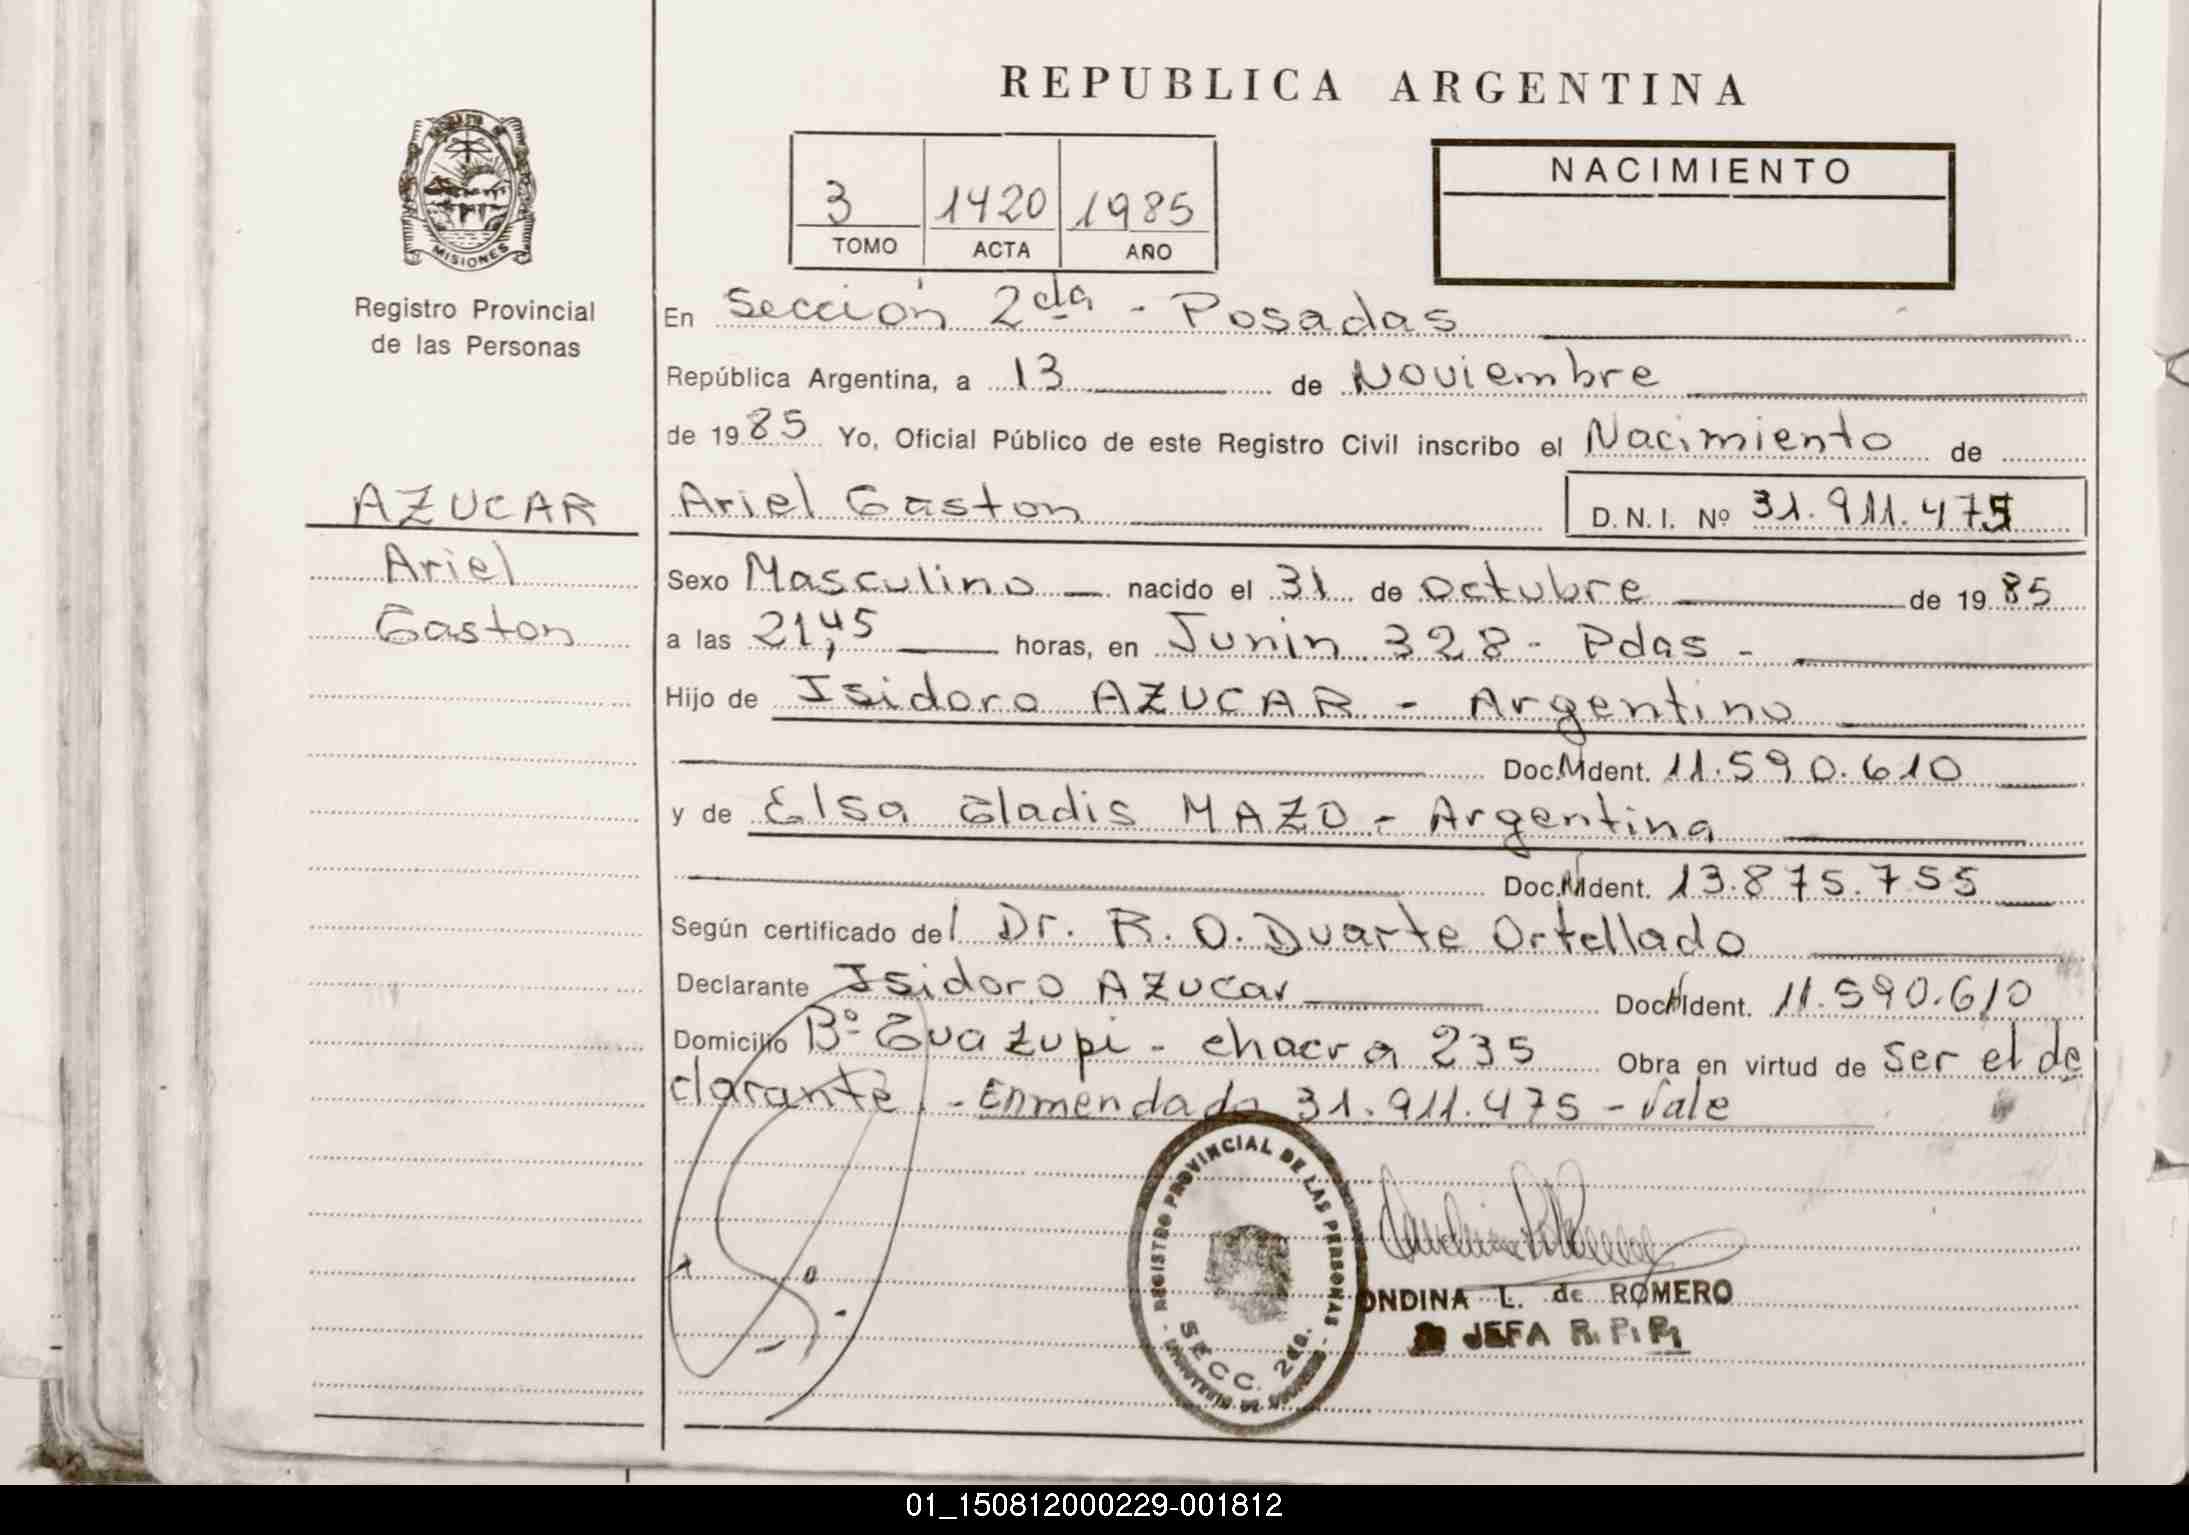 REPUBLICA ARGENTINA
NACIMIENTO
3 1420 1985
TOMO ACTA AÑO
MISIONES
Registro Provincial
de las Personas
AZUCAR
Ariel
Gaston
En Sección 2da - Posadas
República Argentina, a 13 de Noviembre
de 1985 Yo, Oficial Público de este Registro Civil inscribo el Nacimiento de
Ariel Gaston D.N.I. Nº 31.911.475
Sexo Masculino nacido el 31 de octubre de 1985
a las 21,45 horas, en Junin 328 - Pdas -
Hijo de Isidoro AZUCAR - Argentino
Doc. Ident. 11.590.610
y de Elsa Gladis MAZO - Argentina
Doc. Ident. 13.875.755
Según certificado del Dr. R. O. Duarte Ortellado
Declarante Isidoro AZucar Doc. Ident. 11.590.610
Domicilio Bº Guazupi - chacra 235 Obra en virtud de ser el de
clarante. - Enmendado 31.911.475 - Vale
REGISTRO PROVINCIAL DE LAS PERSONAS
SECC. 2da.
ONDINA L. de ROMERO
JEFA R. P. P.
01_150812000229-001812